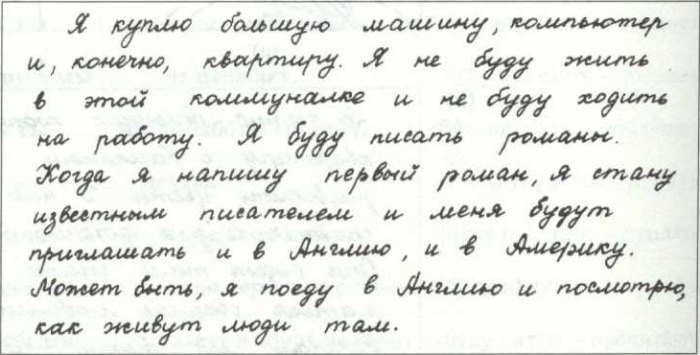 Я куплю большую машину, компьютер
и, конечно, квартиру. Я не буду жить
в этой коммуналке и не буду ходить
на работу. Я буду писать романы.
Когда я напишу первый роман, я стану
известным писателем и меня будут
приглашать и в Англию, и в Америку.
Может быть, я поеду в Англию и посмотрю,
как живут люди там.